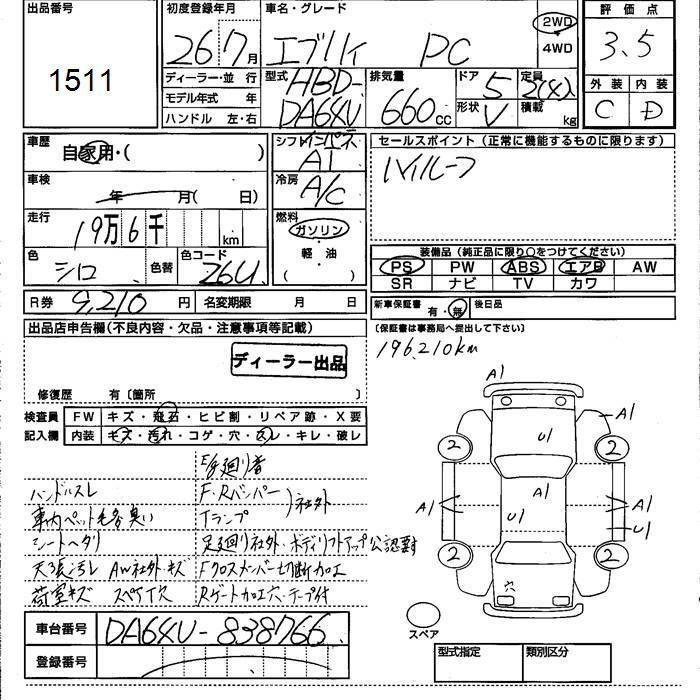 出品番号
1511
初度登録年月
26 7月
車名・グレード
エブリィ PC
2WD
4WD
評価点
3.5
外装 内装
C D
ディーラー・並行
モデル年式 年
ハンドル 左・右
型式 HBD-
DA64V
排気量
660cc
ドア 5
形状 V
定員 2(4)人
積載 kg
車歴
自家用・( )
車検
年 月( 日)
走行
19万6千 km
色
シロ
色替
色コード
26U
R券 9,210円
名変期限 月 日
シフト インパネ
AT
冷房
A/C
燃料
ガソリン
・
軽油
( )
セールスポイント(正常に機能するものに限ります)
ハイルーフ
装備品(純正品に限り○をつけてください)
PS PW ABS エアB AW
SR ナビ TV カワ
新車保証書 有・無
後日品
(保証書は事務局へ提出して下さい)
196,210km
出品店申告欄(不良内容・欠品・注意事項等記載)
ディーラー出品
修復歴 有〔箇所 〕
検査員
記入欄
FW キズ・飛石・ヒビ割・リペア跡・X要
内装 キズ・汚れ・コゲ・穴・スレ・キレ・破レ
ハンドルスレ
車内ペット毛多臭い
シートヘタリ
天張汚レ AW社外・キズ
荷室キズ スペア欠
F・Rバンパー
Tランプ
社外
足廻り社外・ボディリフトアップ公認要す
Fクロスメンバー切断加工
Rゲート加工穴・テープ付
A1
A1
U1
2
2
A1
A1
U1
A1
U1
2
2
穴
スペア
車台番号 DA64V-838766
登録番号
型式指定 類別区分